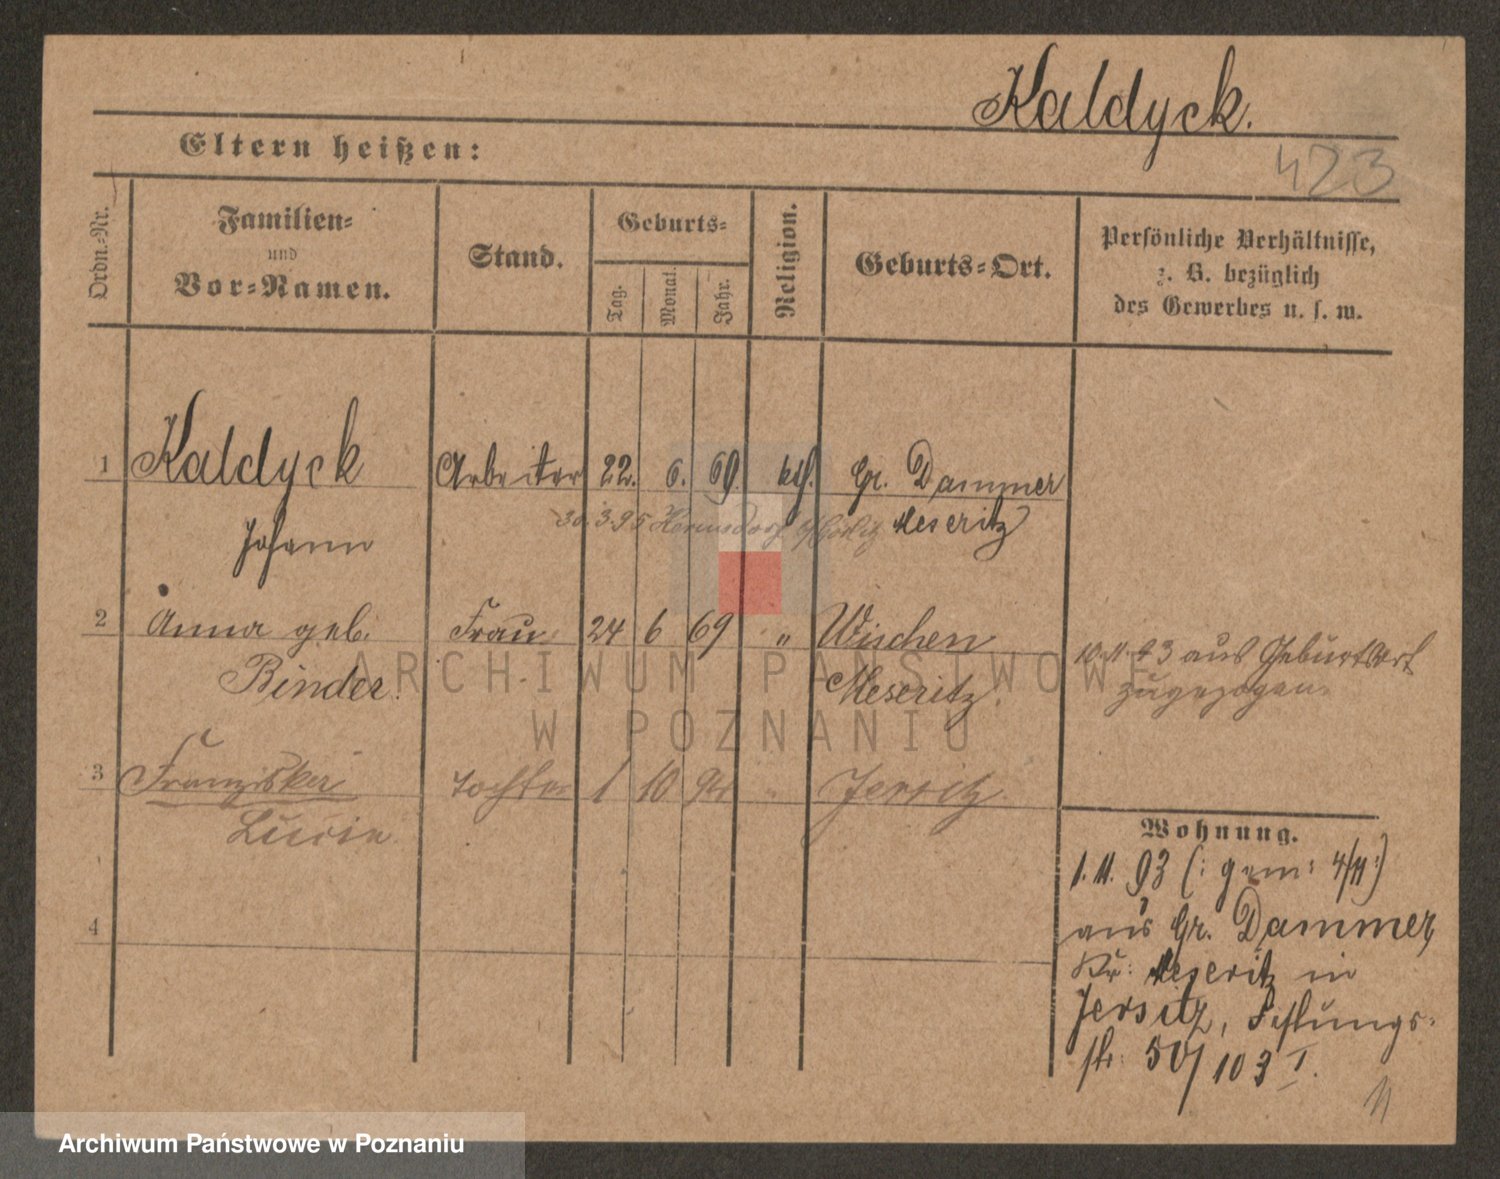 Kaldyck.
423
Eltern heißen:
Ordn.=Nr.
Familien=
und
Vor=Namen.
Stand.
Geburts=
Tag.
Monat.
Jahr.
Religion.
Geburts=Ort.
Persönliche Verhältnisse,
z. B. bezüglich
des Gewerbes u. s. w.
1 Kaldyck Arbeiter 22. 6. 69. kth. Gr. Dammer
30.3.95 Hermsdorf b/Görlitz Meseritz
Johann
2 Anna geb. Frau 24 6 69 " Wischen
Binder. Meseritz.
10.11.93 aus Geburtsort
zugezogen.
3 Franziska Tochter 1 10 94 " Jersitz
Lucie
4
Wohnung.
1.11.93 (: gem: 4/11:)
aus Gr. Dammer,
Kr: Meseritz in
Jersitz, Festungs-
str: 50/103 I.
ARCHIWUM PAŃSTWOWE
W POZNANIU
Archiwum Państwowe w Poznaniu